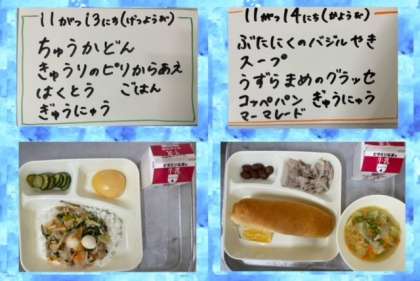 11がつ13にち(げつようび)
ちゅうかどん
きゅうりのピリからあえ
はくとう ごはん
ぎゅうにゅう
11がつ14にち(かようび)
ぶたにくのバジルやき
スープ
うずらまめのグラッセ
コッペパン ぎゅうにゅう
マーマレード